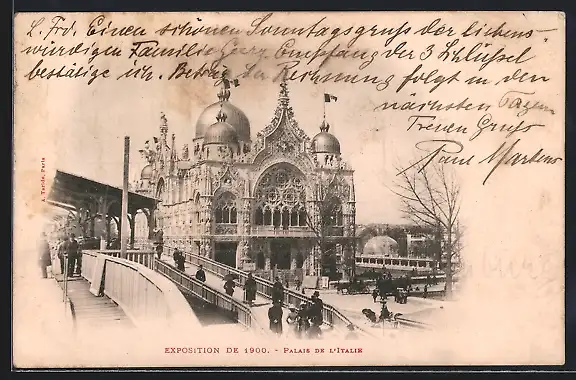 L. Frd. Einen schönen Sonntagsgruß der liebens-
würdigen Familie Empfang der 3 Schlüssel
bestätige ich. Betrag der Rechnung folgt in den
nächsten Tagen
Treuen Gruß
Paul Martens
A. Taride, Paris
EXPOSITION DE 1900. - PALAIS DE L'ITALIE